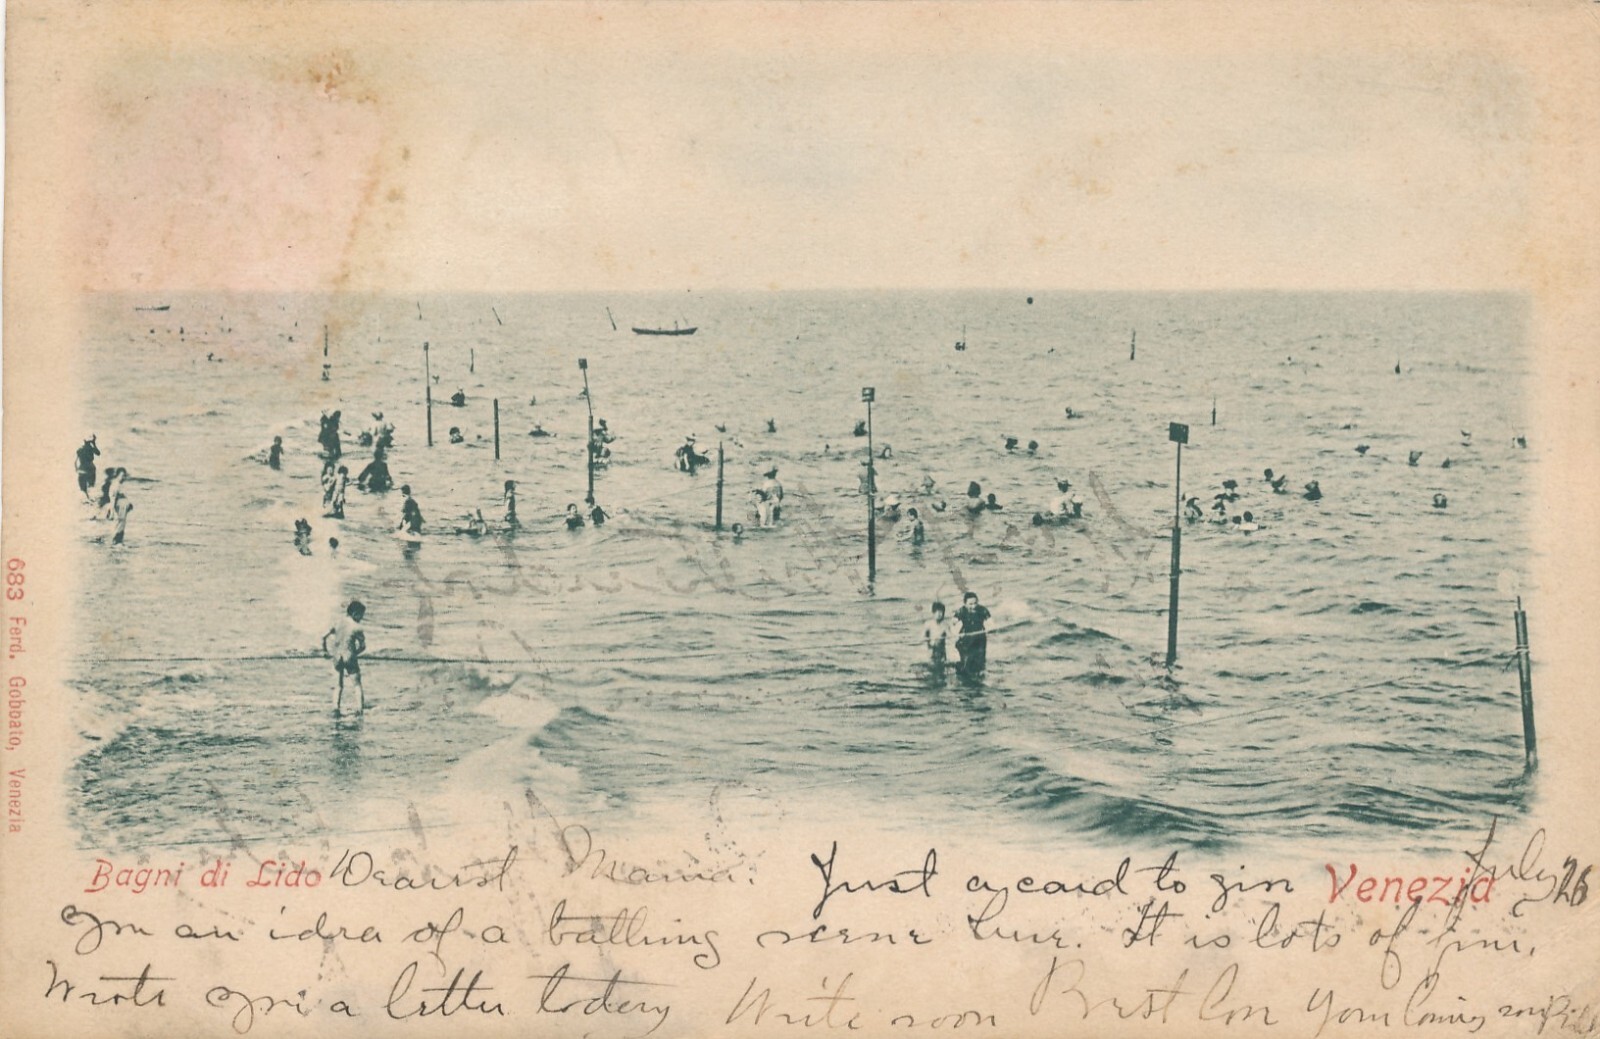 683 Ferd. Gobbato, Venezia
Bagni di Lido
Venezia
July 26
Dearest Mama: Just a card to give
you an idea of a bathing scene here. It is lots of fun.
Wrote you a letter today Write soon Best love Your loving son